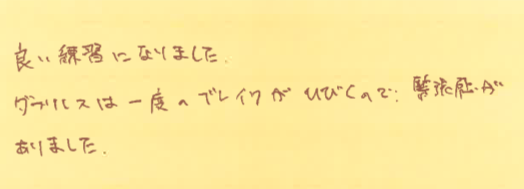 良い練習になりました.
ダブルスは一度のブレイクがひびくので、緊張感が
ありました.